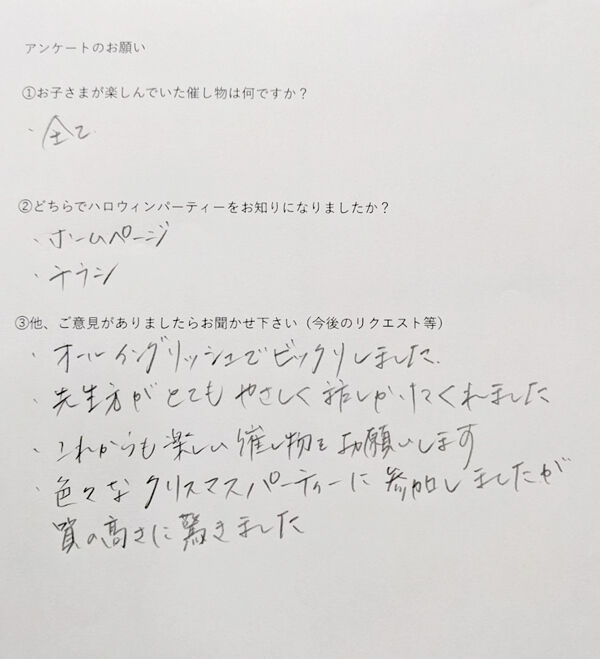 アンケートのお願い
①お子さまが楽しんでいた催し物は何ですか？
・全て
②どちらでハロウィンパーティーをお知りになりましたか？
・ホームページ
・チラシ
③他、ご意見がありましたらお聞かせ下さい（今後のリクエスト等）
・オールイングリッシュでビックリしました
・先生方がとてもやさしく話しかけてくれました
・これからも楽しい催し物をお願いします
・色々なクリスマスパーティーに参加しましたが
質の高さに驚きました